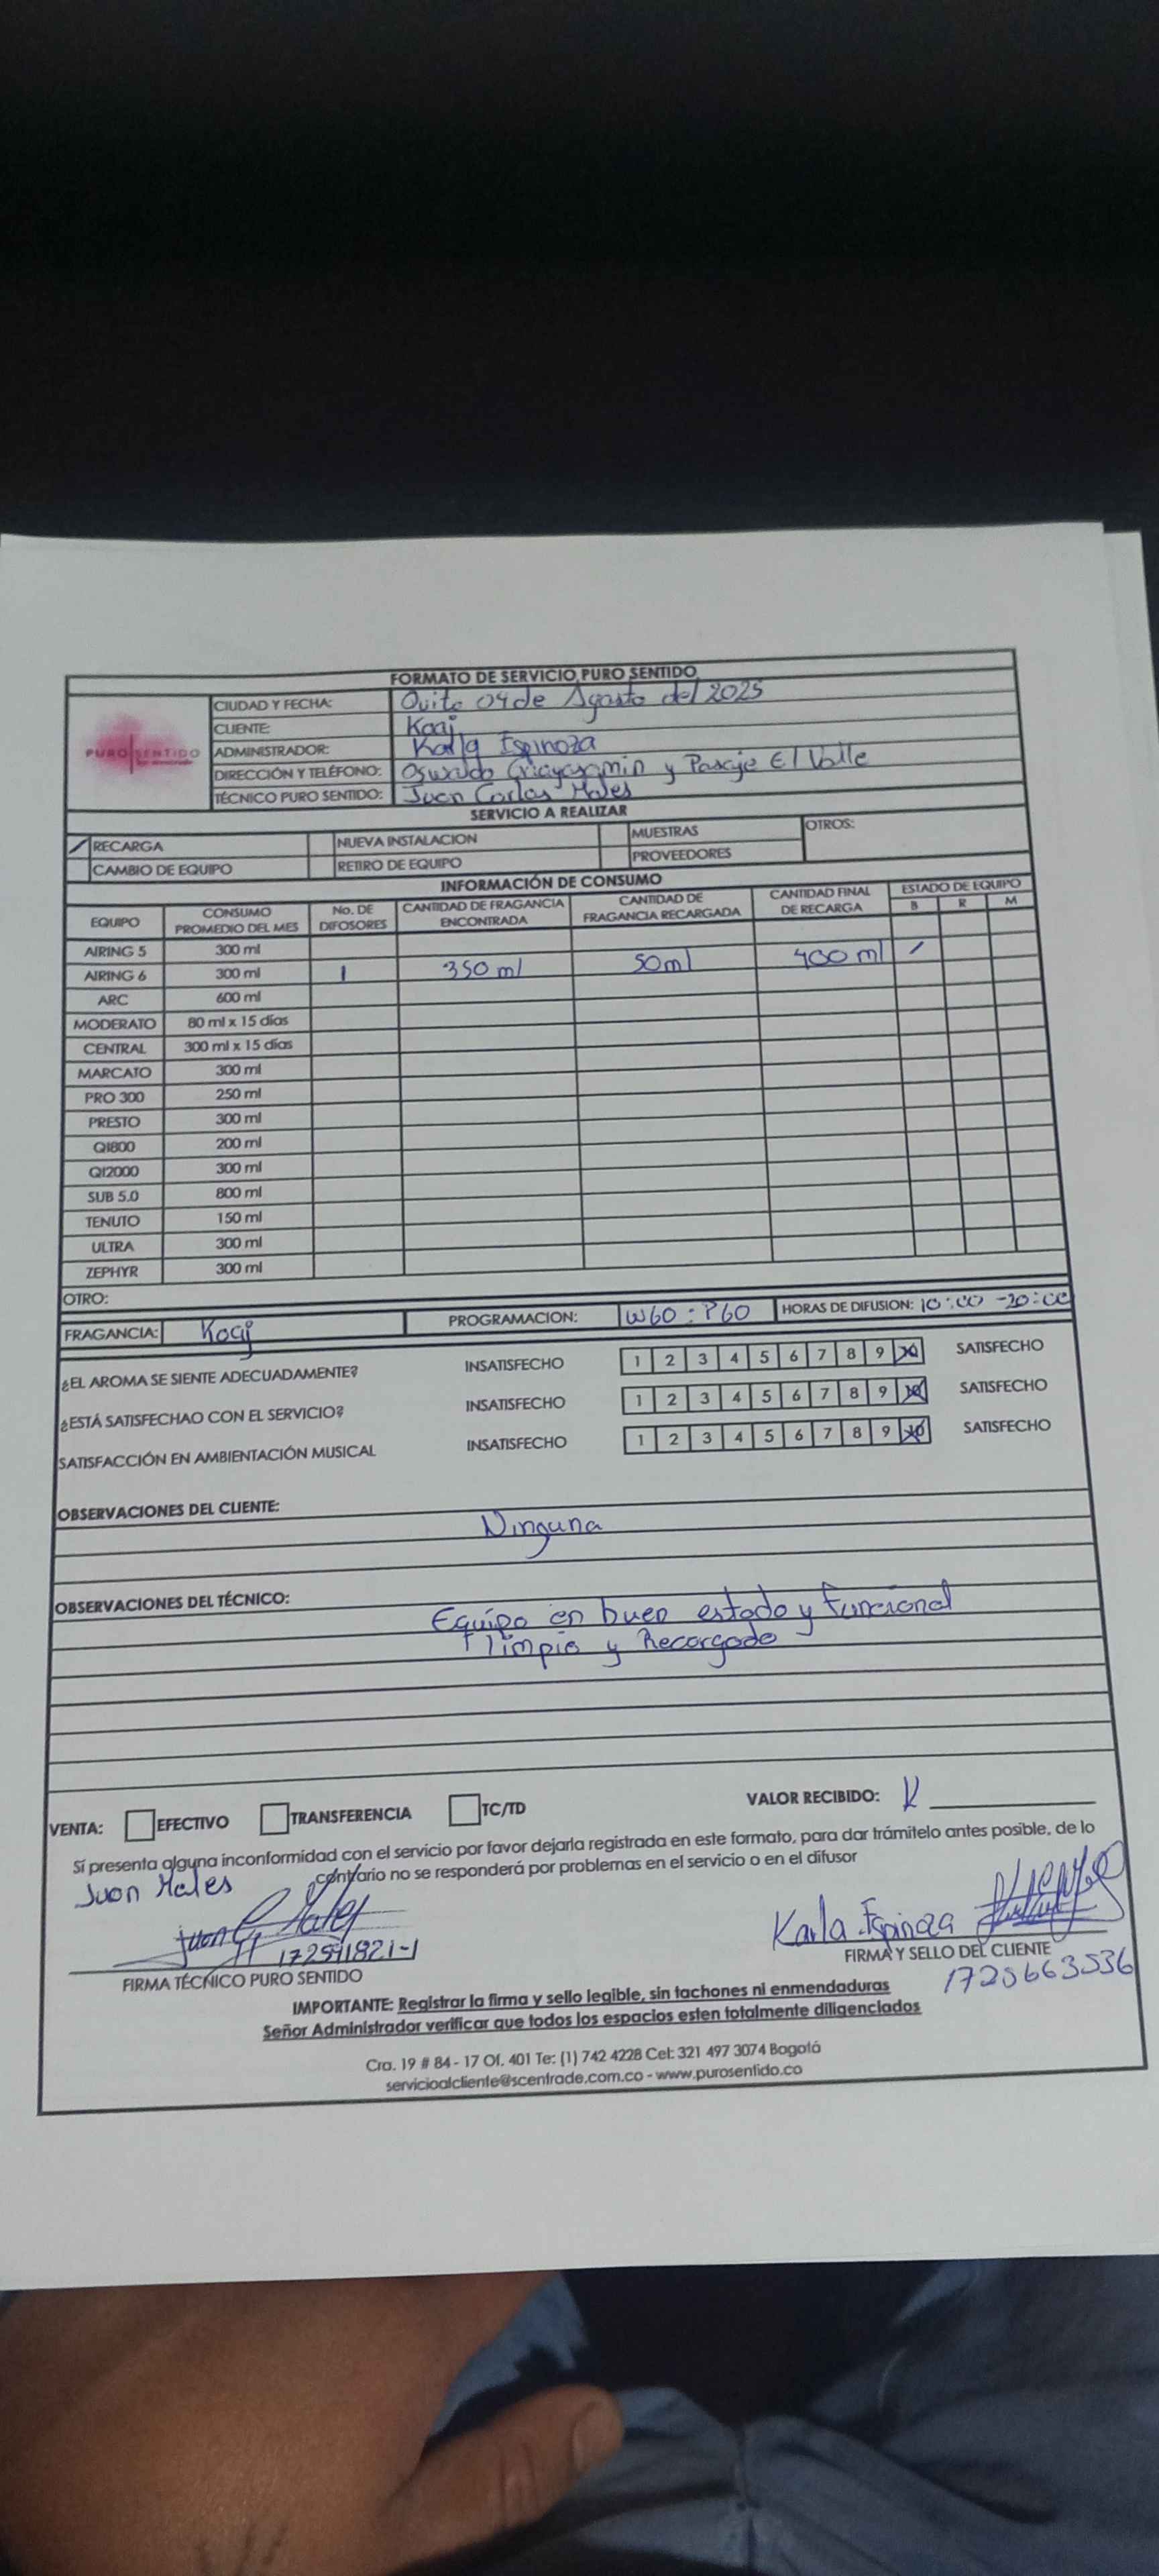 FORMATO DE SERVICIO PURO SENTIDO
PURO SENTIDO
CIUDAD Y FECHA: Quito 04 de Agosto del 2025
CLIENTE: Koaj
ADMINISTRADOR: Karla Espinoza
DIRECCIÓN Y TELÉFONO: Oswaldo Guayasamin y Pasaje El Valle
TÉCNICO PURO SENTIDO: Juan Carlos Males
SERVICIO A REALIZAR
RECARGA NUEVA INSTALACION MUESTRAS OTROS:
CAMBIO DE EQUIPO RETIRO DE EQUIPO PROVEEDORES
INFORMACIÓN DE CONSUMO
EQUIPO CONSUMO PROMEDIO DEL MES No. DE DIFOSORES CANTIDAD DE FRAGANCIA ENCONTRADA CANTIDAD DE FRAGANCIA RECARGADA CANTIDAD FINAL DE RECARGA ESTADO DE EQUIPO B R M
AIRING 5 300 ml
AIRING 6 300 ml 1 350 ml 50ml 400 ml
ARC 600 ml
MODERATO 80 ml x 15 días
CENTRAL 300 ml x 15 días
MARCATO 300 ml
PRO 300 250 ml
PRESTO 300 ml
QI800 200 ml
QI2000 300 ml
SUB 5.0 800 ml
TENUTO 150 ml
ULTRA 300 ml
ZEPHYR 300 ml
OTRO:
FRAGANCIA: Koaj PROGRAMACION: W60 : P60 HORAS DE DIFUSION: 10:00 - 20:00
¿EL AROMA SE SIENTE ADECUADAMENTE? INSATISFECHO 1 2 3 4 5 6 7 8 9 10 SATISFECHO
¿ESTÁ SATISFECHAO CON EL SERVICIO? INSATISFECHO 1 2 3 4 5 6 7 8 9 10 SATISFECHO
SATISFACCIÓN EN AMBIENTACIÓN MUSICAL INSATISFECHO 1 2 3 4 5 6 7 8 9 10 SATISFECHO
OBSERVACIONES DEL CLIENTE:
Ninguna
OBSERVACIONES DEL TÉCNICO:
Equipo en buen estado y funcional
limpio y Recargado
VENTA: EFECTIVO TRANSFERENCIA TC/TD VALOR RECIBIDO:
Sí presenta alguna inconformidad con el servicio por favor dejarla registrada en este formato, para dar trámitelo antes posible, de lo
contrario no se responderá por problemas en el servicio o en el difusor
Juan Males
Juan C Males
172591821-1
Karla Espinoza
FIRMA TÉCNICO PURO SENTIDO
FIRMA Y SELLO DEL CLIENTE
1725663536
IMPORTANTE: Registrar la firma y sello legible, sin tachones ni enmendaduras
Señor Administrador verificar que todos los espacios esten totalmente diligenciados
Cra. 19 # 84 - 17 Of. 401 Te: (1) 742 4228 Cel: 321 497 3074 Bogotá
servicioalcliente@scentrade.com.co - www.purosentido.co